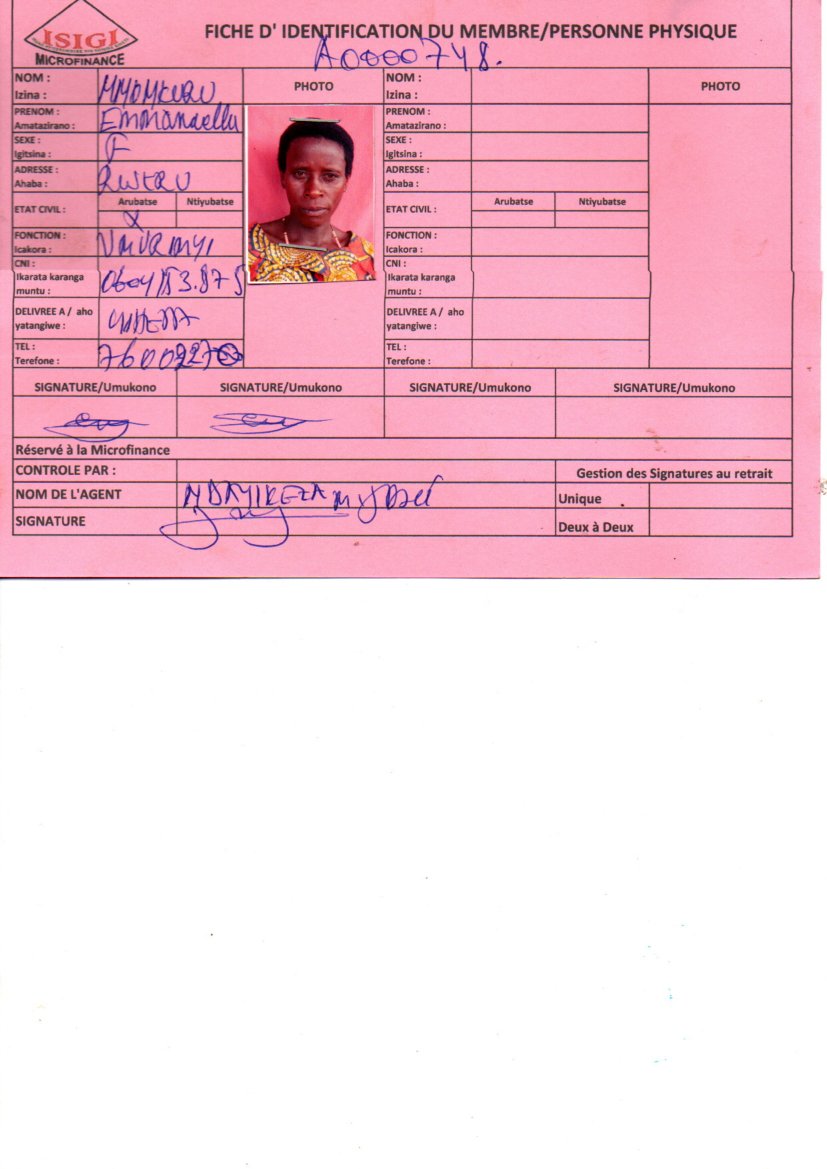 ISIGI
MICROFINANCE
FICHE D' IDENTIFICATION DU MEMBRE/PERSONNE PHYSIQUE
A0000748.
NOM :
Izina :
PHOTO
NOM :
Izina :
PHOTO
PRENOM :
Amatazirano : Emmanuella
PRENOM :
Amatazirano :
SEXE :
Igitsina : F
SEXE :
Igitsina :
ADRESSE :
Ahaba : RWERU
ADRESSE :
Ahaba :
ETAT CIVIL : Arubatse Ntiyubatse
X
ETAT CIVIL : Arubatse Ntiyubatse
FONCTION :
Icakora :
FONCTION :
Icakora :
CNI :
Ikarata karanga
muntu :
CNI :
Ikarata karanga
muntu :
DELIVREE A / aho
yatangiwe :
DELIVREE A / aho
yatangiwe :
TEL :
Terefone :
TEL :
Terefone :
SIGNATURE/Umukono SIGNATURE/Umukono SIGNATURE/Umukono SIGNATURE/Umukono
Réservé à la Microfinance
CONTROLE PAR :
Gestion des Signatures au retrait
NOM DE L'AGENT
Unique
SIGNATURE
Deux à Deux